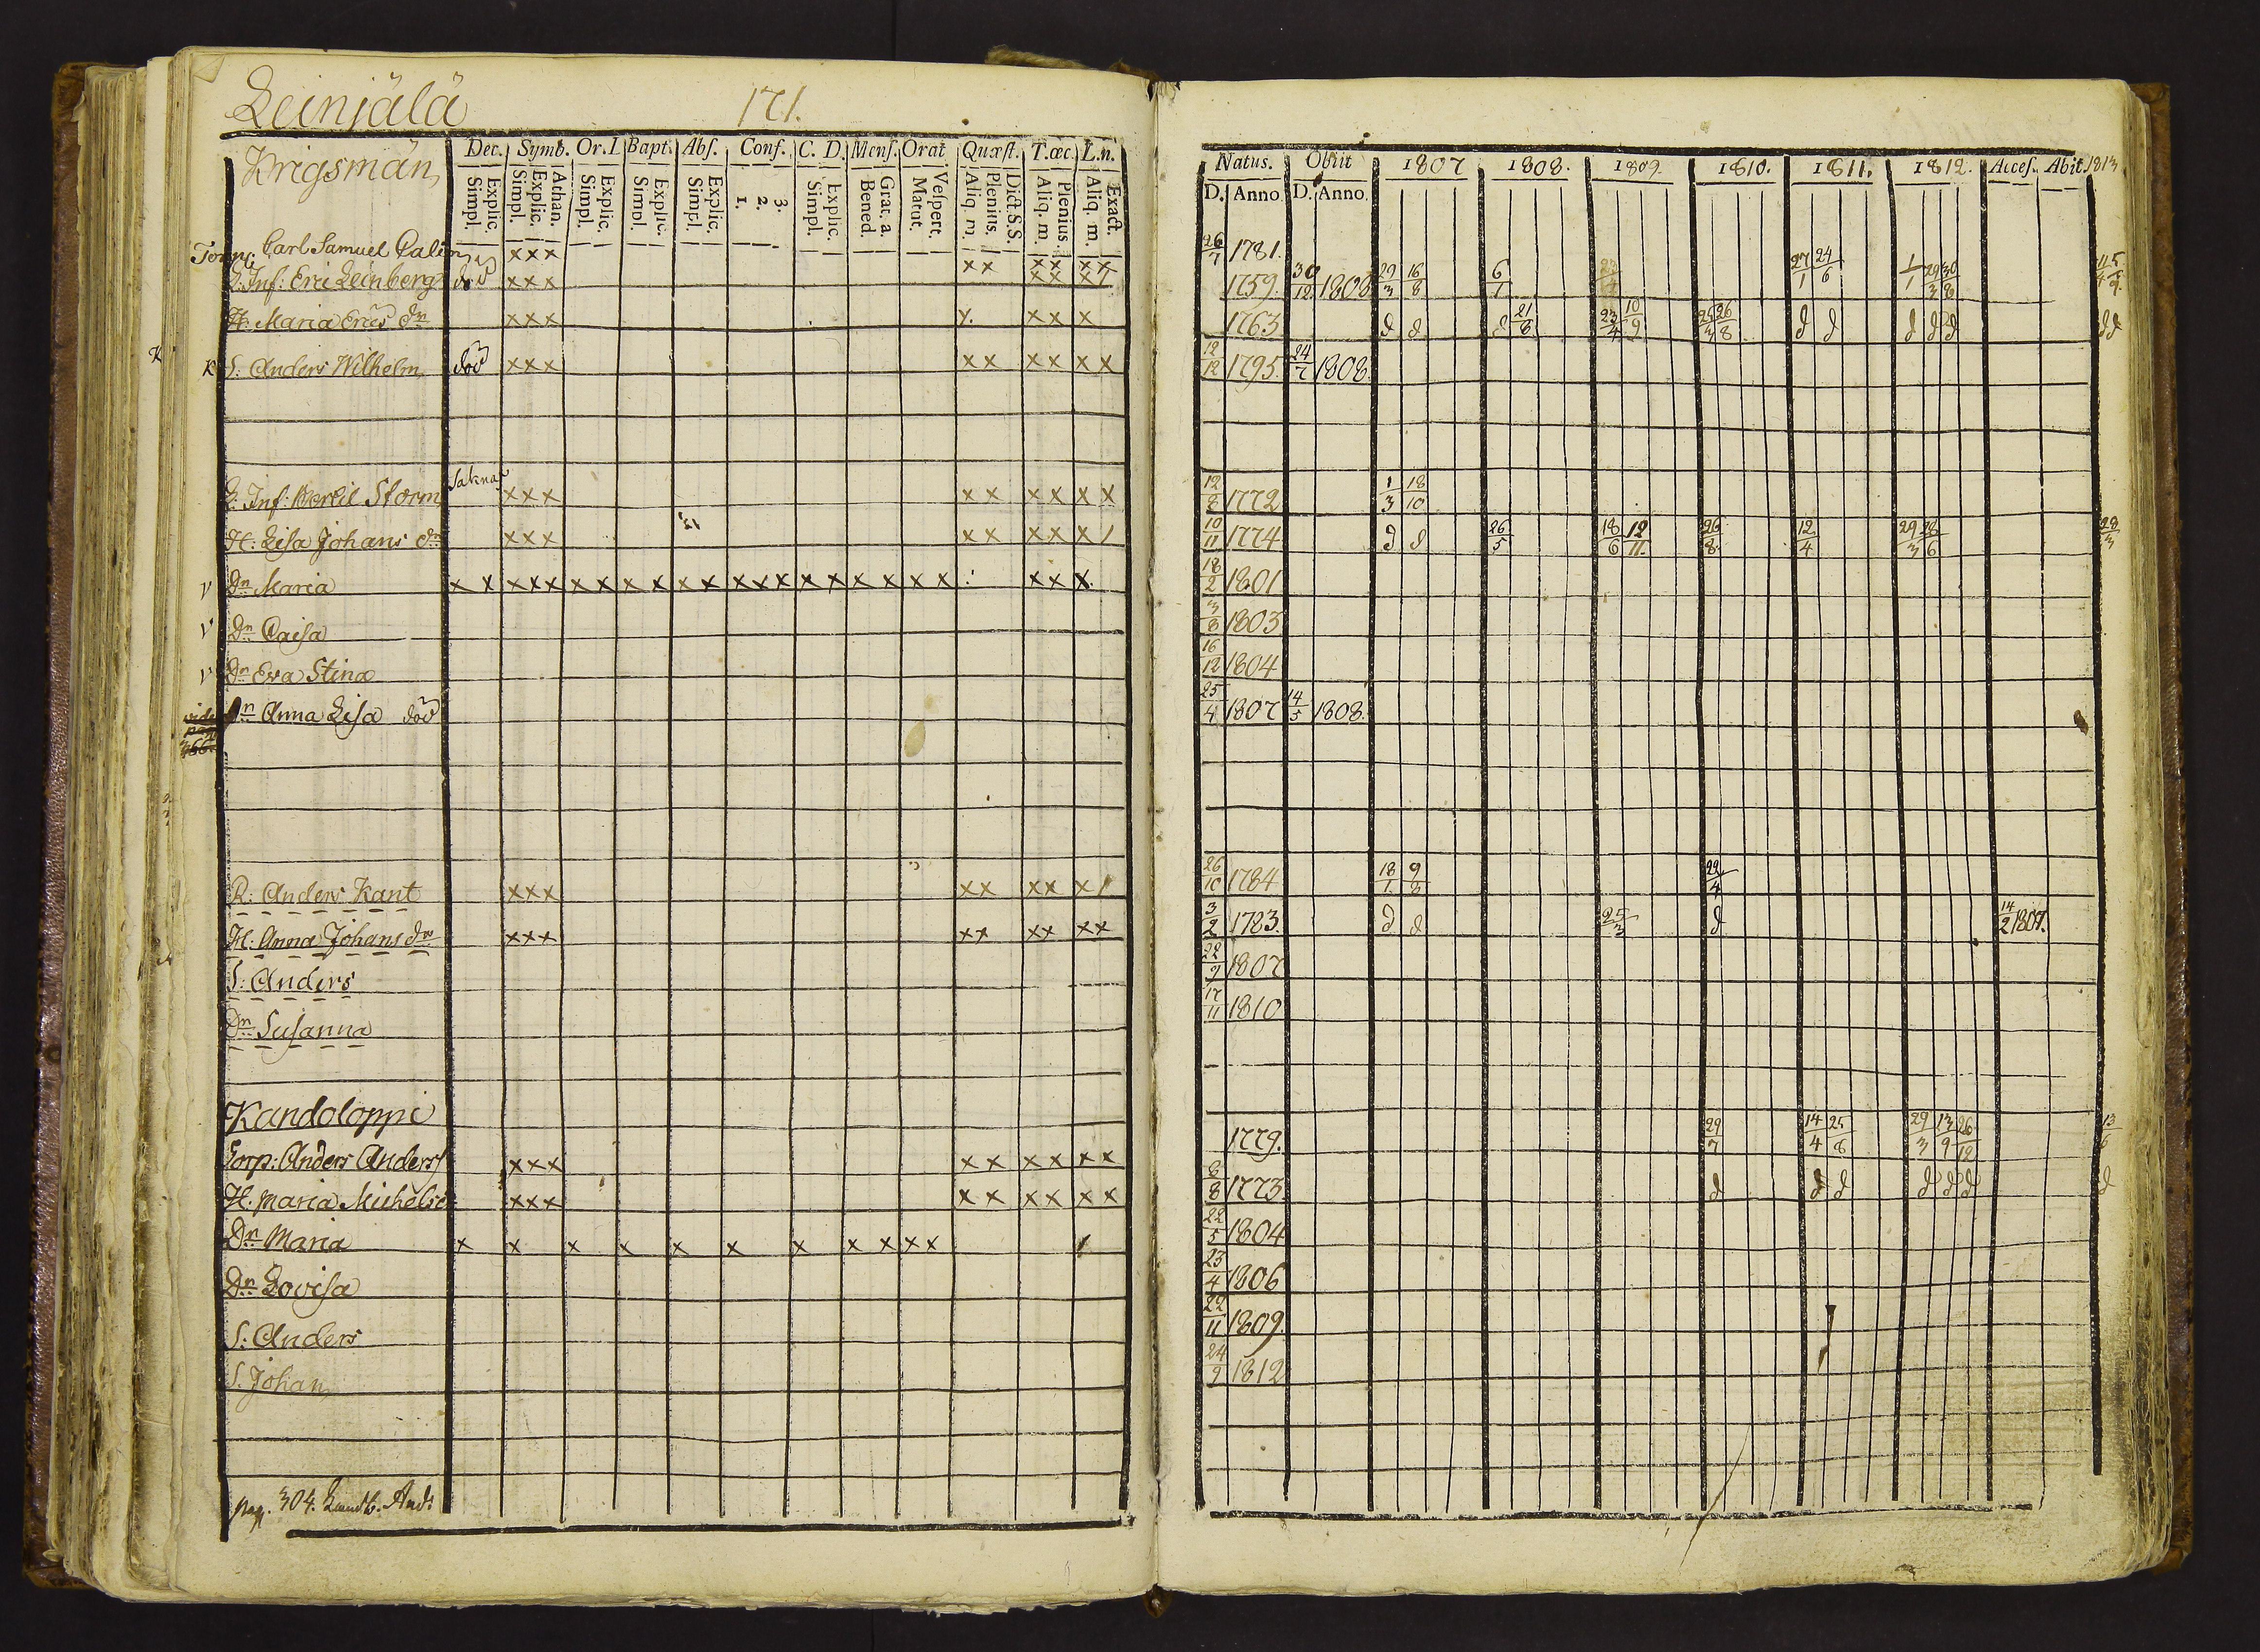 Leinjälä 171.
Krigsmän
Dec. Symb. Or. Bapt. Abs. Conf. C. D. Mens. Orat Quæst. T. œc. L. n.
Explic. Simpl. Athan. Explic. Simpl. Explic. Simpl. Explic. Simpl. Explic. Simpl. 3. 2. 1. Explic. Simpl. Grat. a. Bened. Vespert. Matut. Dict. S.S. Plenius. Aliq. m. Plenius. Aliq. m. Exact. Aliq. m.
Natus. Obiit 1807 1808. 1809. 1810. 1811. 1812. Acces. Abit. 1813
D. Anno D. Anno
Carl Samuel xxx 26/7 1781. 27/1 24/6
Inf: Eric Leinberg död xxx xx xx xx 1759. 30/12 1808 29/3 16/8 6/1
H: Maria Erics dr xxx x. xx x x 1763 d d d 21/8 23/4 10/9 25/3 26/8 d d d d d d d
K S: Anders Wilhelm död xxx xx xx xx 12/12 1795. 24/7 1808.
Inf: Storm Saknas xxx xx xx xx 12/8 1772 1/3 18/10
H: Lisa Johans dr xxx xx xx x/ 10/11 1774 d d 26/5 18/6 12/11. 26/8. 12/4 29/3 28/6 28/3
V Dr Maria x x xxx x x x x x x xxx x x x x x x xx x. 18/2 1801
V Dr Caisa 3/8 1803
V Dr Eva Stina 16/12 1804
Dr Anna Lisa död 25/4 1807 14/5 1808.
R: Anders Kant xxx xx xx x/ 26/10 1784 18/1 9/8 22/4
H: Anna Johans dr xxx xx xx xx 3/2 1783. d d 25/3 d 14/2 1807.
S: Anders 22/9 1807
Dr Susanna 17/11 1810
Kandoloppi
Torp: Anders Anderss xxx xx xx xx 1779. 29/7 14/4 25/8 29/3 13/9 26/12 13/6
H. Maria Michelsd xxx xx xx xx 8/8 1773 d d d d d d d
Dr Maria x x x x x x x x x x x / 22/5 1804
Dr Lovisa 23/4 1806
S: Anders 22/11 1809.
S. Johan 24/9 1812
pag. 304. Landb. And: